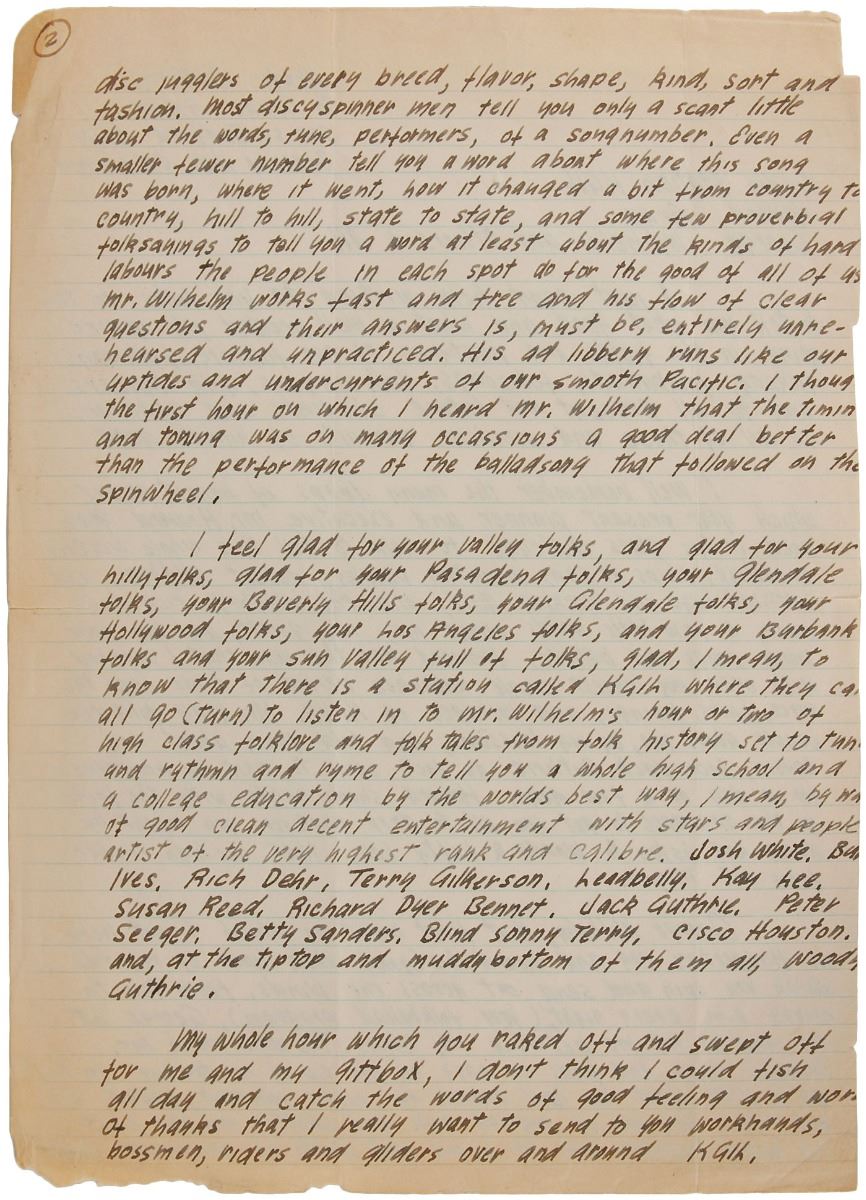 2
disc jugglers of every breed, flavor, shape, kind, sort and
fashion. Most discyspinner men tell you only a scant little
about the words, tune, performers, of a songnumber. Even a
smaller fewer number tell you a word about where this song
was born, where it went, how it changed a bit from country to
country, hill to hill, state to state, and some few proverbial
folksayings to tell you a word at least about the kinds of hard
labours the people in each spot do for the good of all of us
Mr. Wilhelm works fast and free and his flow of clear
questions and their answers is, must be, entirely unre-
hearsed and unpracticed. His ad libbery runs like our
uptides and undercurrents of our smooth Pacific. I thoug
the first hour on which I heard Mr. Wilhelm that the timin
and toning was on many occassions a good deal better
than the performance of the balladsong that followed on the
spinwheel.
I feel glad for your valley folks, and glad for your
hillyfolks, glad for your Pasadena folks, your Glendale
folks, your Beverly Hills folks, your Glendale folks, your
Hollywood folks, your Los Angeles folks, and your Burbank
folks and your Sun Valley full of folks, glad, I mean, to
know that there is a station called KGIL where they ca
all go (turn) to listen in to Mr. Wilhelm's hour or two of
high class folklove and folk tales from folk history set to tun
and rythmn and ryme to tell you a whole high school and
a college education by the worlds best way, I mean, by wa
of good clean decent entertainment with stars and people
artist of the very highest rank and calibre. Josh White. Bur
Ives. Rich Dehr, Terry Gilkerson. Leadbelly. Kay Lee.
Susan Reed. Richard Dyer Bennet. Jack Guthrie. Peter
Seeger. Betty Sanders. Blind Sonny Terry. Cisco Houston.
and, at the tiptop and muddybottom of them all, Woody
Guthrie.
My whole hour which you raked off and swept off
for me and my gittbox, I don't think I could fish
all day and catch the words of good feeling and wor
of thanks that I really want to send to you workhands,
bossmen, riders and gliders over and around KGIL.